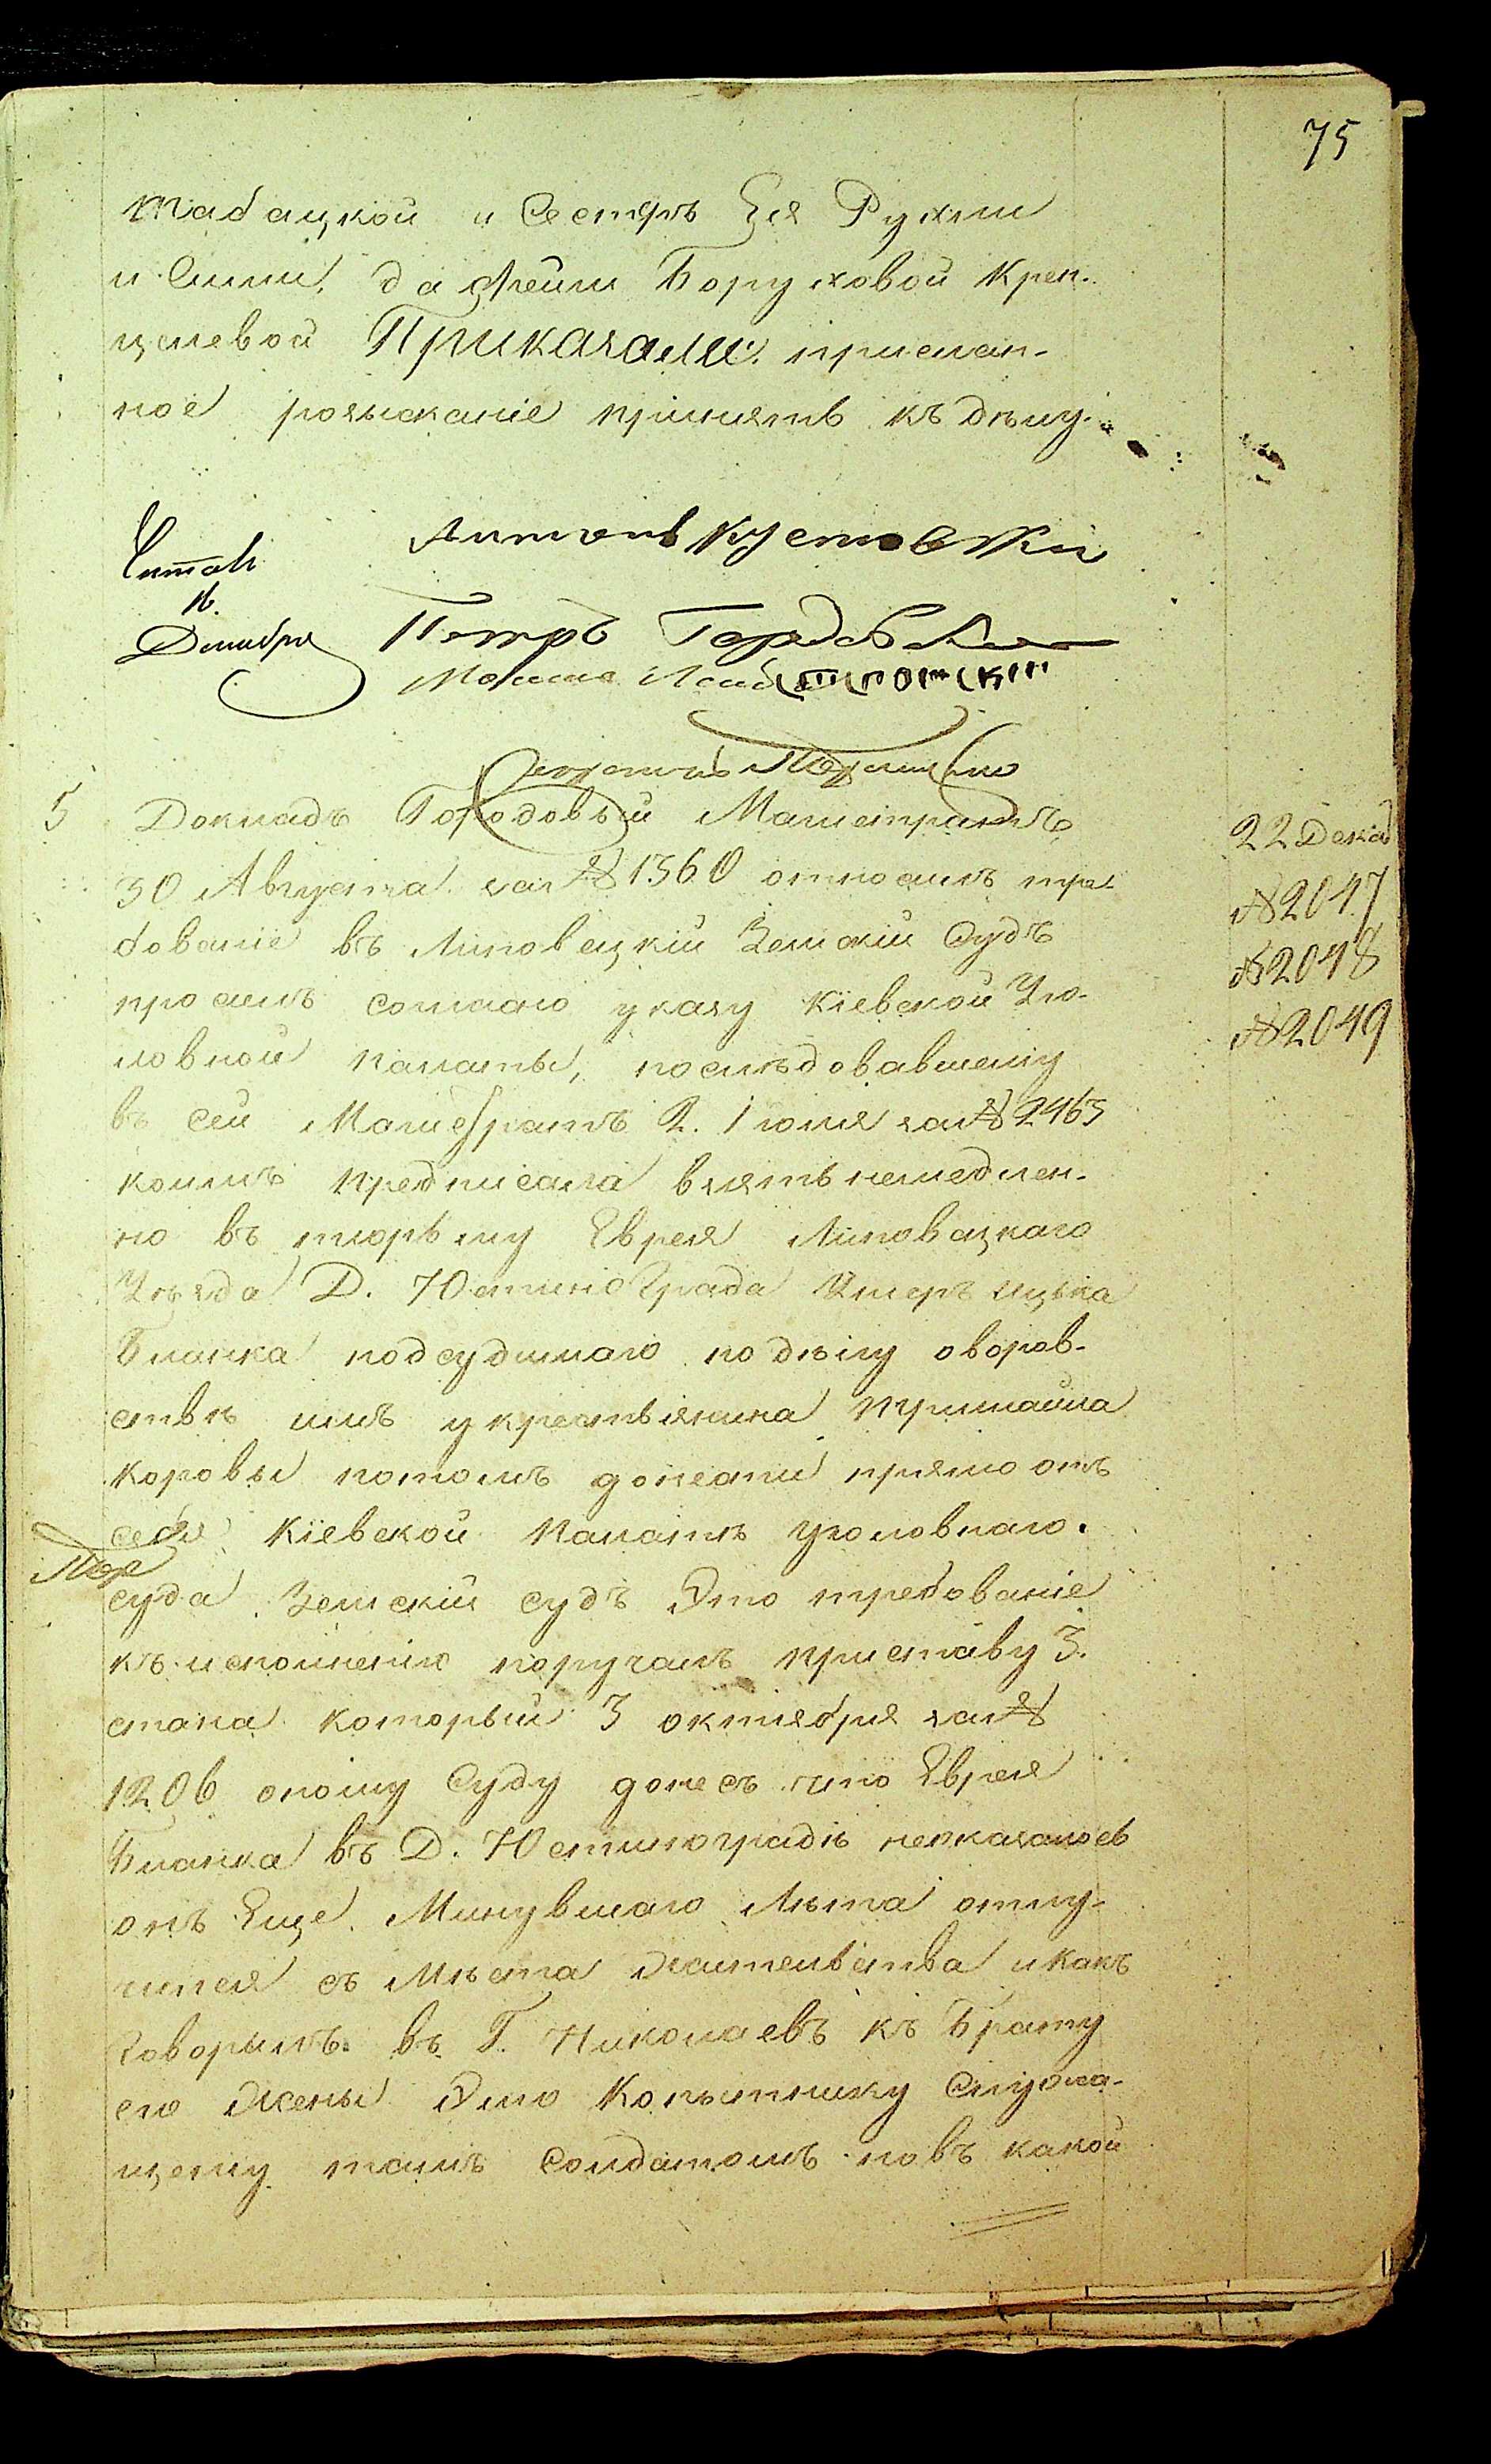 75
табацкой и Сестръ Ея Рухли
и Симы, да Фейги Боруховой Крен-
целевой Приказали: присман-
ное розысканіе принять къ дѣлу.
Антонъ Кустовскій
Читалъ
Декабря
Петръ
Мошко
Секретарь
5 Докладъ Городовый Магистратъ
22 Декаб
30 Августа за № 1360 относилъ тре-
№ 2047
бованіе въ Липовецкій Земскій Судъ
№ 2048
просилъ согласно указу Кіевской Уго-
№ 2049
ловной Палаты, послѣдовавшему
въ сей Магистратъ 2. Іюля за № 2463
коимъ предписала взять немедлен-
но въ тюрьму Еврея Липовецкаго
Уѣзда Д. Юстинограда Ицька
Бланка подсудимаго по дѣлу о воров-
ствѣ имъ у крестьянина
коровы потомъ донести прямо отъ
себя Кіевской Палатѣ Уголовнаго
суда. Земскій судъ Это требованіе
къ исполненію поручалъ приставу 3.
стана который 3 октября за №
1206 оному Суду донесъ что Еврея
Бланка въ Д. Юстиноградѣ неоказалось
онъ Еще Минувшаго Лѣта отлу-
чился съ Мѣста Жительства и Какъ
говорылъ въ Г. Николаевъ къ Брату
его Жены Это Копытнику Служа-
щему тамъ Солдатомъ но въ какой